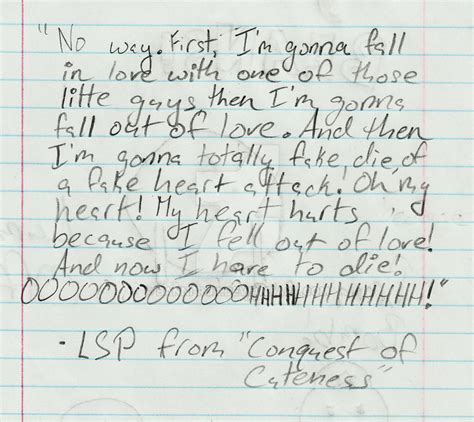 "No way. First, I'm gonna fall
in love with one of those
litte guys, then I'm gonna
fall out of love. And then
I'm gonna totally fake die of
a fake heart attack! Oh, my
heart! My heart hurts
because I fell out of love!
And now I have to die!
OOOOOOOOOOOOOHHHHHHHHHHHHH!"
· LSP from "Conquest of
Cuteness"